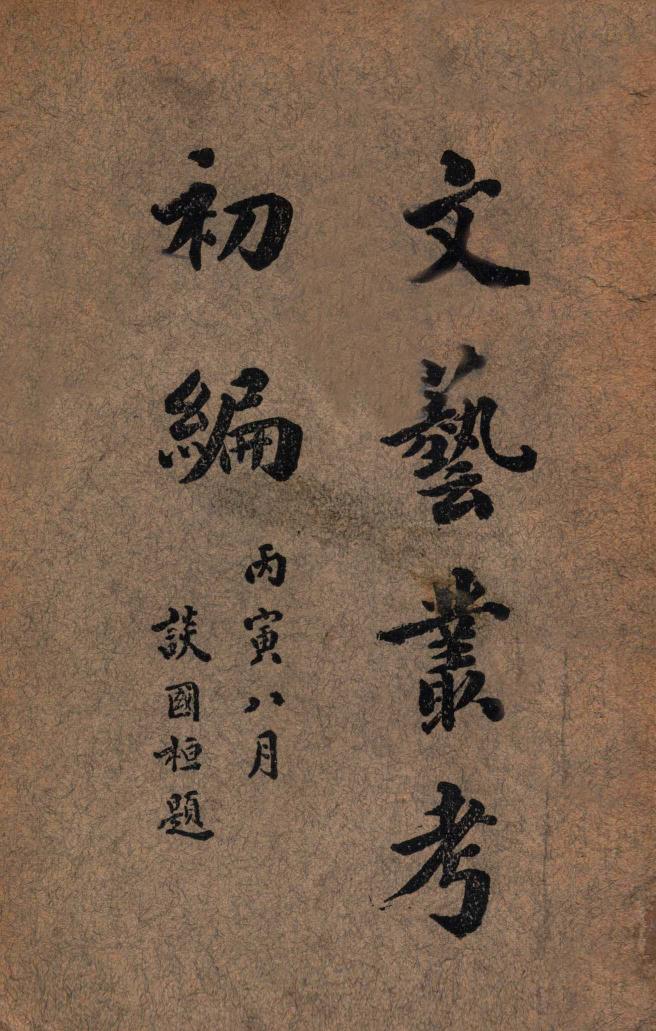 文藝叢考
初編
丙寅八月
談國桓題